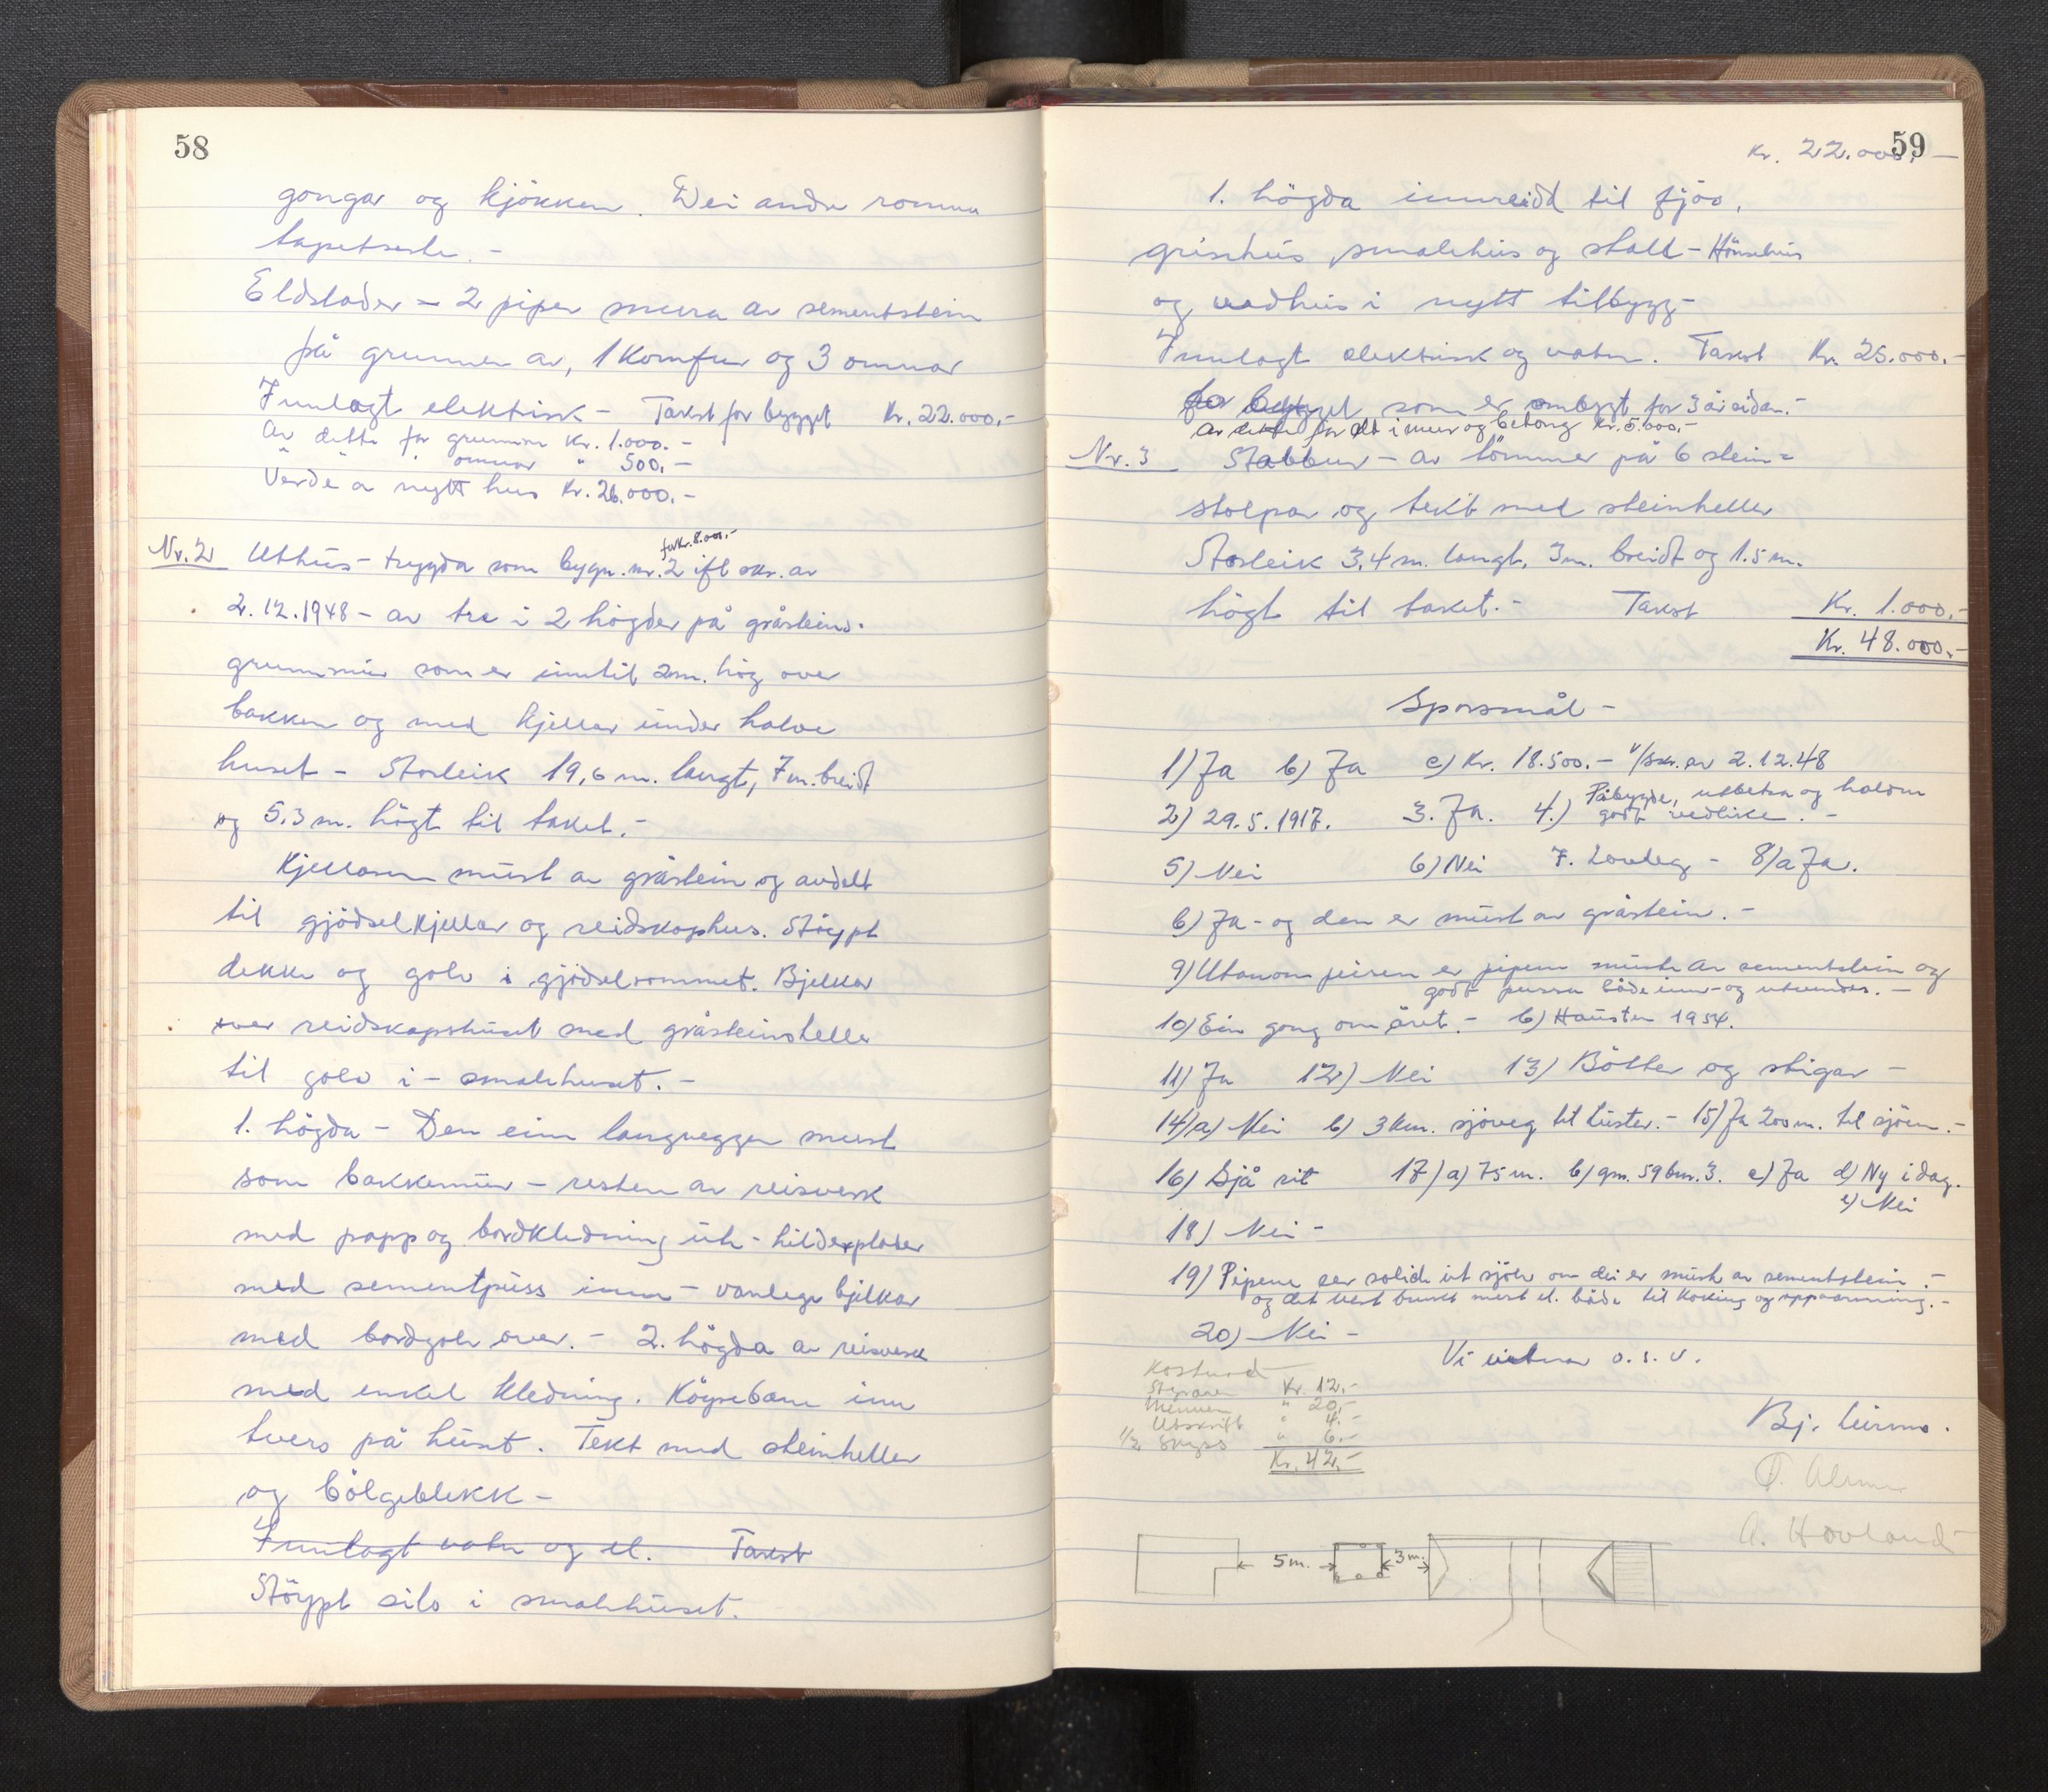 58
gongar og kjökken. Dei andre romma
tapetserte. -
Eldstader - 2 piper mura av sementstein
på grunnen av, 1 Komfur og 3 omnar
Innlagt elektrisk - Takst for bygget Kr. 22.000.-
Av dette for grunnm Kr. 1.000.-
" " " omnar " 500.-
Verde a nytt hus Kr. 26.000.-
for Kr. 8.000.-
Nr. 2 Uthus - trygda som bygn. nr. 2 ifl skr. av
2.12.1948 - av tre i 2 högder på gråsteins-
grunnmur som er inntil 2m. hög over
bakken og med kjellar under halve
huset - Storleik 19,6 m. langt, 7 m. breidt
og 5.3 m. högt til taket. -
Kjellaren murt av gråstein og avdelt
til gjödselkjellar og reidskaphus. Stöypt
dekke og golv i gjödselrommet. Bjelkar
over reidskapshuset med gråsteinsheller
til golv i - smalehuset. -
1. högda - Den ein langveggen murt
som bakkemur - resten av reisverk
med papp og bordkledning ute - hilderplater
med sementpuss inne - vanlege bjelkar
med bordgolv over. - 2. högda av reisverk
med enkel kledning. Köyrebane inn
tvers på huset. Tekt med steinheller
og bölgeblekk -
Innlagt vatn og el. Takst
Stöypt silo i smalehuset.
59
Kr. 22.000.-
1. högda innreidd til fjös,
grisehus, smalehus og stall - Hönsehus
og vedhus i nytt tilbygg -
Innlagt elektrisk og vatn. Takst Kr. 25.000.-
for bygget som er ombygt for 3 år sidan. -
Av dette for alt i mur og betong Kr. 5.000.-
Nr. 3 Stabbur - av tömmer på 6 stein=
stolpar og tekt med steinheller
Storleik 3,4 m. langt, 3m. breidt og 1.5 m.
högt til taket. - Takst Kr. 1.000.-
Kr. 48.000.-
Sporsmål -
1) Ja b) Ja c) Kr. 18.500.- v/skr. av 2.12.48
2) 29.5.1917. 3. Ja. 4.) Påbygde, utbetra og haldne
godt vedlike. -
5) Nei 6) Nei 7. Lovleg - 8) a Ja.
b) Ja - og den er murt av gråstein. -
9) Utanom peisen er pipene murte av sementstein og
godt pussa både inn- og utvendes. -
10) Ein gong om året. - b) Hausten 1954.
11) Ja 12) Nei 13) Bötter og stigar -
14) a) Nei b) 3 km. sjöveg til Luster. - 15) Ja 200 m. til sjöen. -
16) Sjå rit 17) a) 75 m. b) gm. 59 bm. 3. c) Ja d) Ny i dag.
e) Nei
18) Nei -
19) Pipene ser solide ut sjölv om dei er murte av sementstein. -
og det vert brukt mest el. både til koking og oppvarming. -
20) Nei -
Vi vitnar o.s.v.
Kostnad
Styraren Kr. 12.-
Mennene " 20.-
Utskrift " 4.-
1/2 Skyss " 6.-
Kr. 42.-
Bj. Leirmo.
A. Hovland
5 m. 3 m.